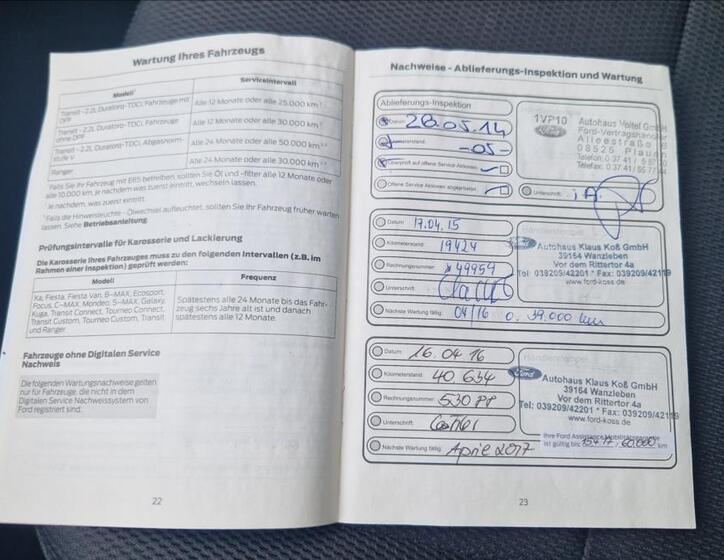 Wartung Ihres Fahrzeugs
Modell¹
Serviceintervall
Transit - 2.2L Duratorq-TDCi, Fahrzeuge mit DPF
Alle 12 Monate oder alle 25.000 km
Transit - 2.2L Duratorq-TDCi, Fahrzeuge ohne DPF
Alle 12 Monate oder alle 30.000 km
Transit - 2.2L Duratorq-TDCi, Abgasnorm-
stufe V
Alle 24 Monate oder alle 50.000 km
Ranger
Alle 24 Monate oder alle 30.000 km
Falls Sie Ihr Fahrzeug mit E85 betreiben, sollten Sie Öl und -filter alle 12 Monate oder
alle 10.000 km, je nachdem was zuerst eintritt, wechseln lassen.
Je nachdem, was zuerst eintritt.
Falls die Hinweisleuchte - Ölwechsel aufleuchtet, sollten Sie Ihr Fahrzeug früher warten
lassen. Siehe Betriebsanleitung.
Prüfungsintervalle für Karosserie und Lackierung
Die Karosserie Ihres Fahrzeuges muss zu den folgenden Intervallen (z.B. im
Rahmen einer Inspektion) geprüft werden:
Modell
Frequenz
Ka, Fiesta, Fiesta Van, B-MAX, Ecosport,
Focus, C-MAX, Mondeo, S-MAX, Galaxy,
Kuga, Transit Connect, Tourneo Connect,
Transit Custom, Tourneo Custom, Transit
und Ranger
Spätestens alle 24 Monate bis das Fahr-
zeug sechs Jahre alt ist und danach
spätestens alle 12 Monate.
Fahrzeuge ohne Digitalen Service
Nachweis
Die folgenden Wartungsnachweise gelten
nur für Fahrzeuge, die nicht in dem
Digitalen Service Nachweissystem von
Ford registriert sind.
22
Nachweise - Ablieferungs-Inspektion und Wartung
Ablieferungs-Inspektion
Datum: 28.05.14
Kilometerstand: -05-
Überprüft auf offene Service Aktionen
Offene Service Aktionen abgearbeitet
1VP10
Autohaus Voitel GmbH
Ford-Vertragshändler
Alleestraße
08525 Plauen
Telefon: 0 37 41 /
Telefax: 0 37 41 /
Unterschrift: i.A.
Datum: 17.04.15
Kilometerstand: 19424
Rechnungsnummer: 49954
Unterschrift:
Nächste Wartung fällig: 04/16 o. 39.000 km
Händlerstempel
Autohaus Klaus Koß GmbH
39164 Wanzleben
Vor dem Rittertor 4a
Tel 039209/42201 * Fax: 039209/42119
www.ford-koss.de
Datum: 16.04.16
Kilometerstand: 40 634
Rechnungsnummer:
Unterschrift:
Nächste Wartung fällig: April 2017
Händlerstempel
Ford
Autohaus Klaus Koß GmbH
39164 Wanzleben
Vor dem Rittertor 4a
Tel: 039209/42201 * Fax: 039209/42119
www.ford-koss.de
Ihre Ford Assistance Mobilitätsgarantie
ist gültig bis: 60.000 km
23